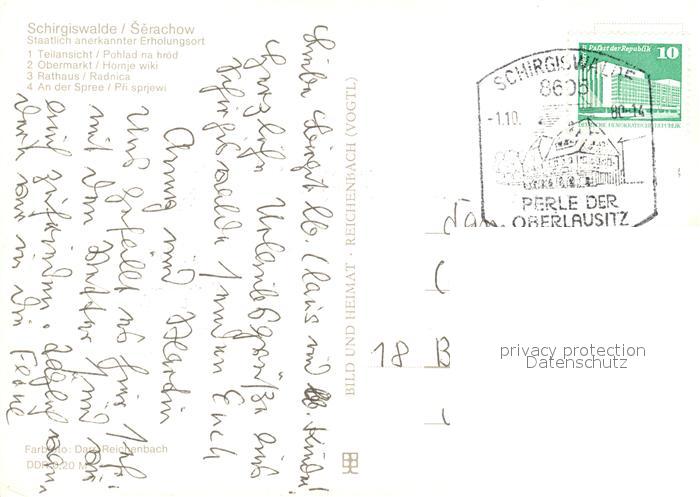 Schirgiswalde / Šěrachow
Staatlich anerkannter Erholungsort
1 Teilansicht / Pohlad na hród
2 Obermarkt / Hornje wiki
3 Rathaus / Radnica
4 An der Spree / Při sprjewi
Liebe Birgit, lb. Claus und lb. Kinder!
Herzliche Urlaubsgrüße aus
Schirgiswalde senden Euch
Armin und Martin
Uns gefällt es hier sehr,
mit dem Wetter sind wir
auch zufrieden.
wir in die Ferne
BILD UND HEIMAT · REICHENBACH (VOGTL)
Farbfoto: Darr, Reichenbach
DDR 0,20 M
B. Palast der Republik 10
DEUTSCHE DEMOKRATISCHE REPUBLIK
SCHIRGISWALDE
8605
-1.10. 80-14
PERLE DER
OBERLAUSITZ
18 B
privacy protection
Datenschutz